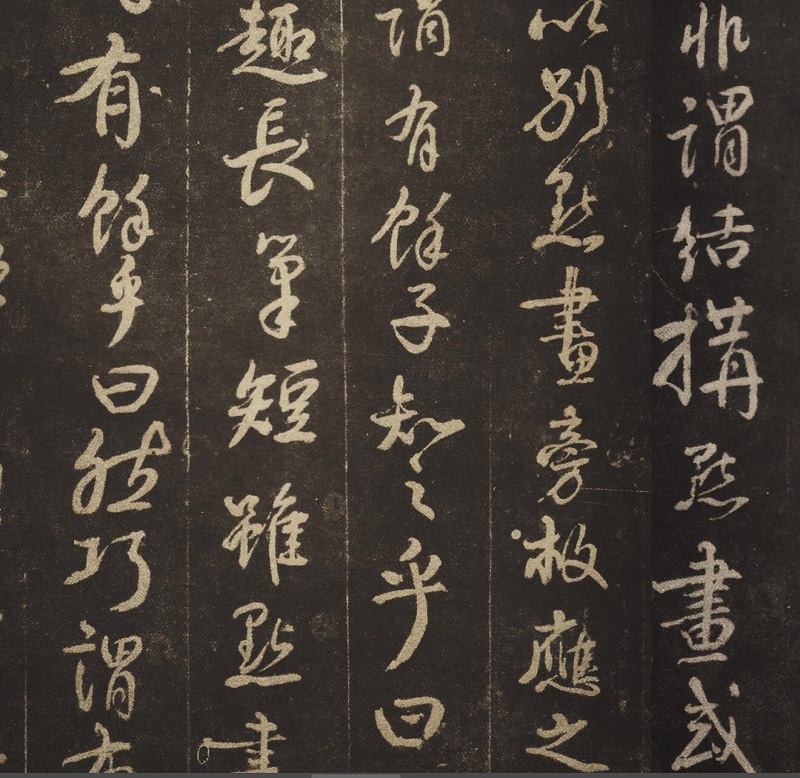 非謂結構點畫或
以別點畫旁救應之
謂有餘子知之乎曰
趣長筆短雖點畫
有餘乎曰然巧謂布